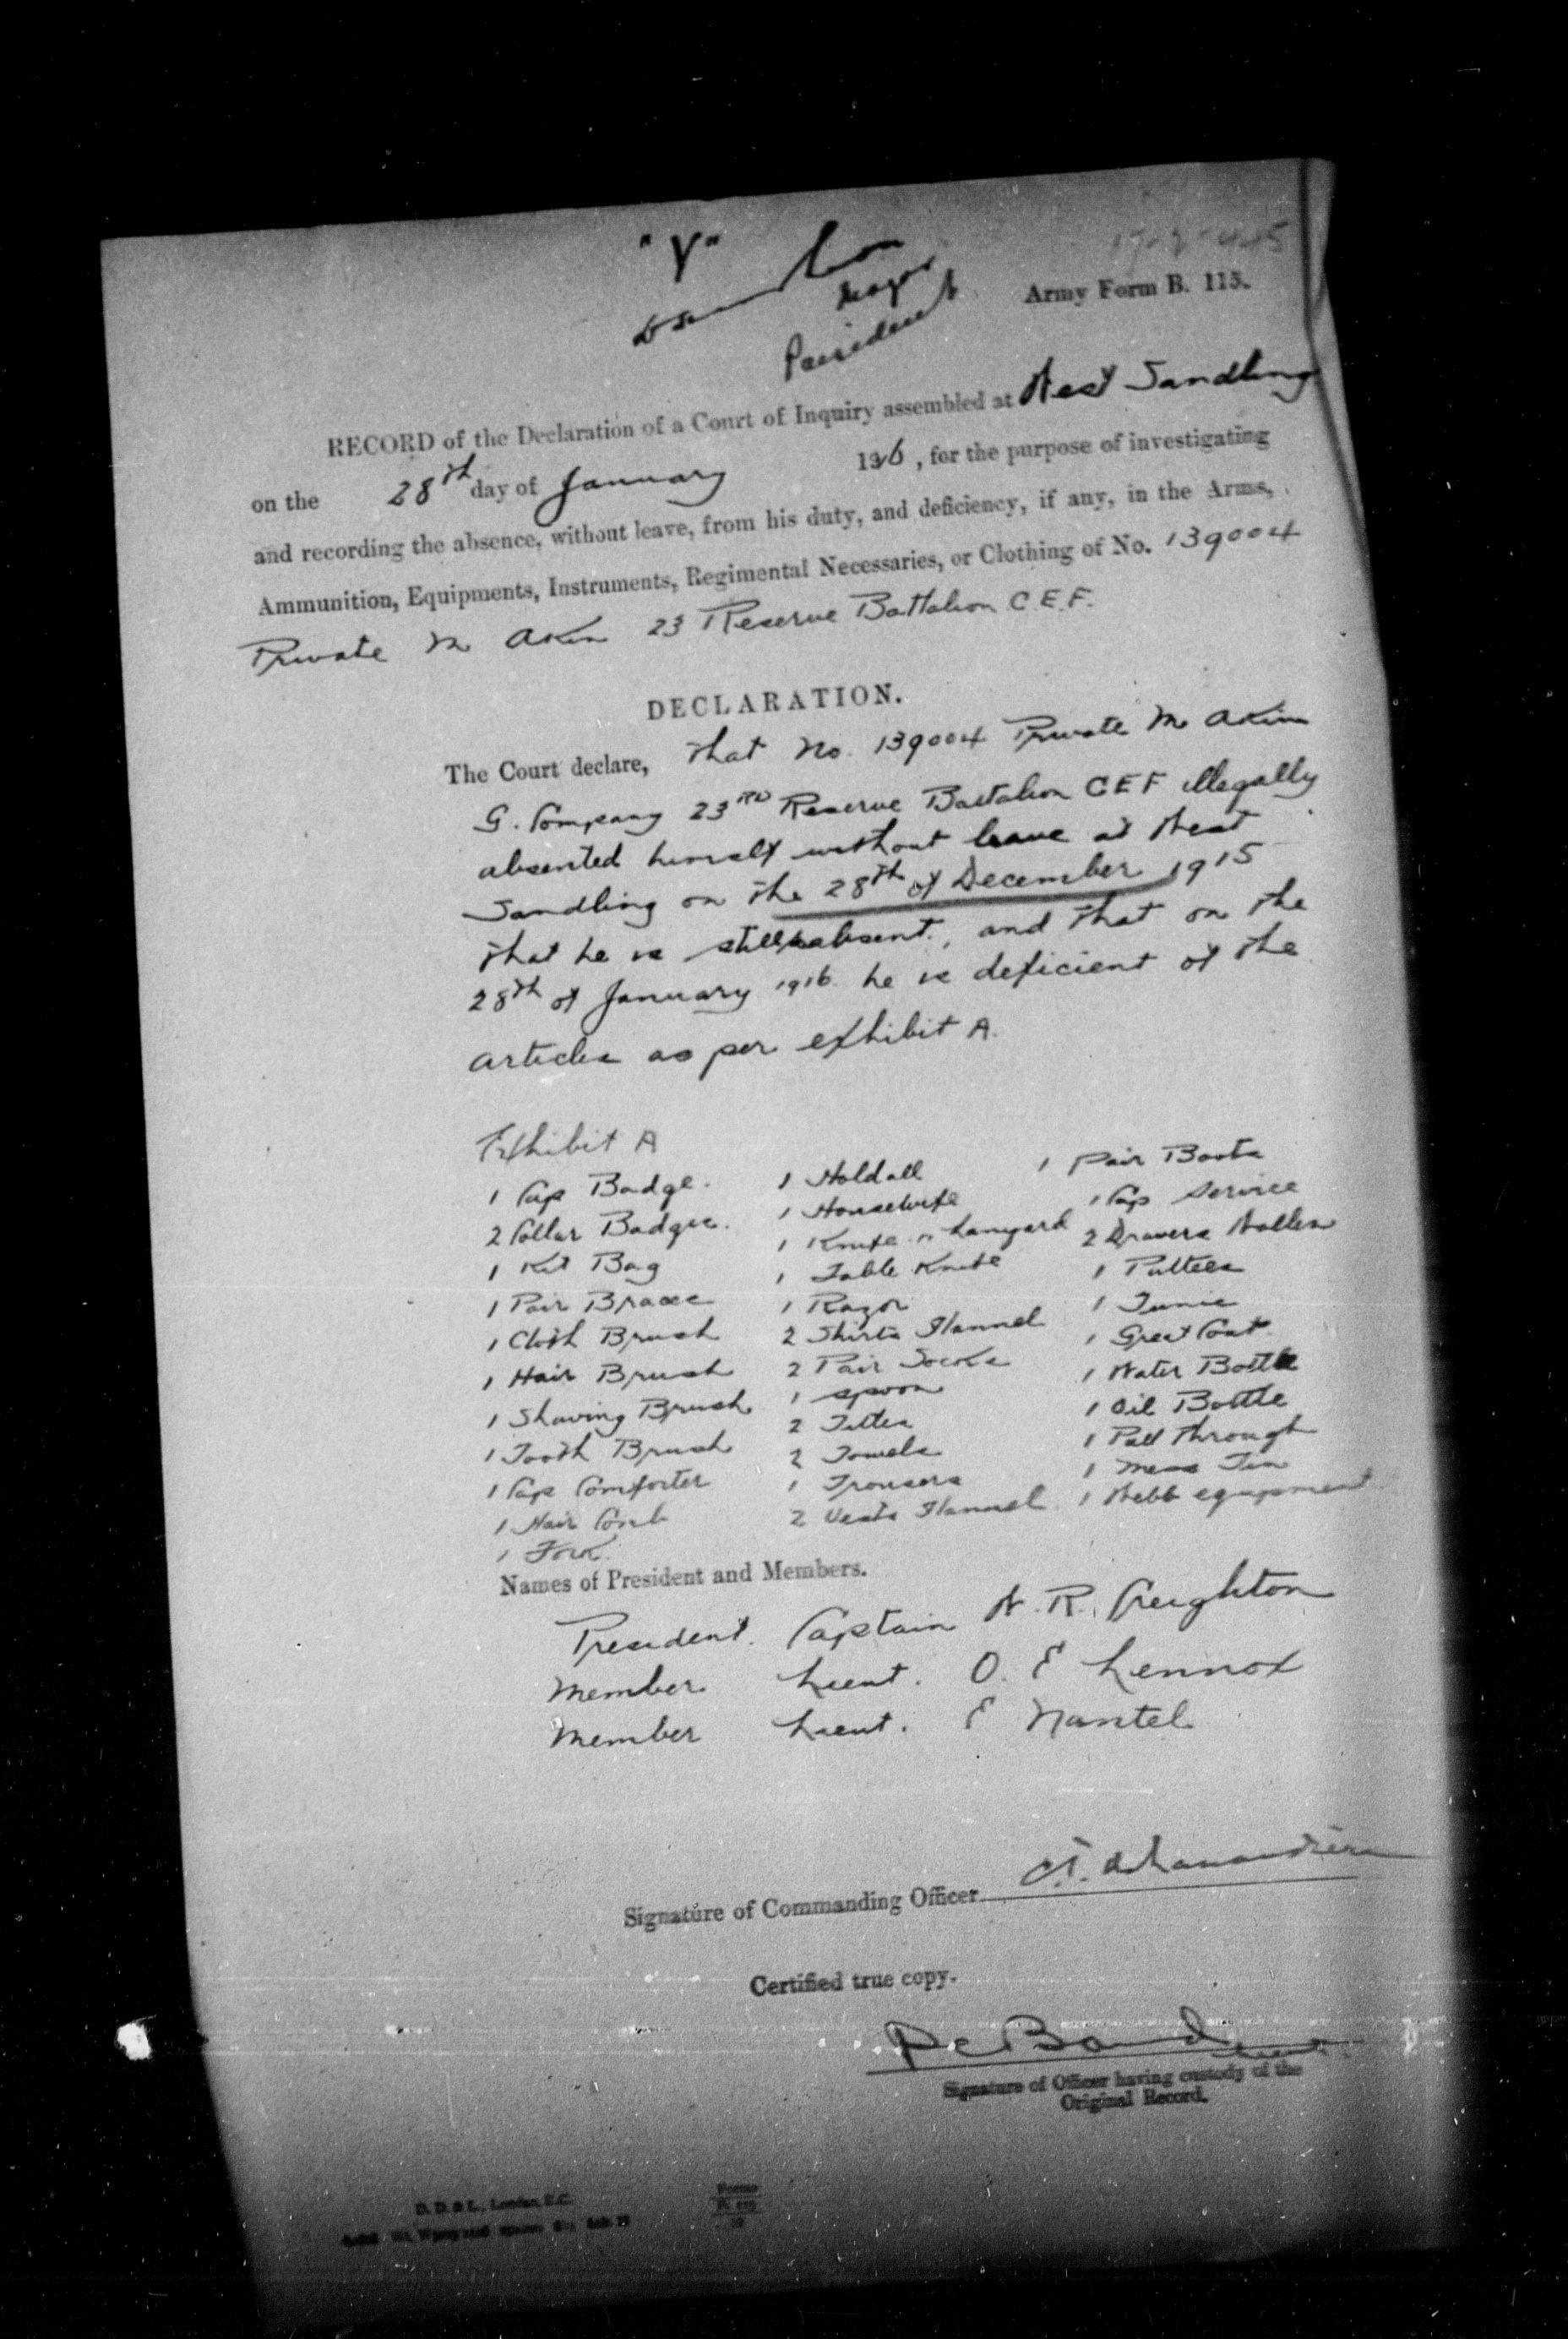 "Y"
Major
President
Army Form B. 115.
RECORD of the Declaration of a Court of Inquiry assembled at West Sandling
on the 28th day of January 1916, for the purpose of investigating
and recording the absence, without leave, from his duty, and deficiency, if any, in the Arms,
Ammunition, Equipments, Instruments, Regimental Necessaries, or Clothing of No. 139004
Private M Akin 23 Reserve Battalion C.E.F.
DECLARATION.
The Court declare, That No. 139004 Private M Akin
G. Company 23RD Reserve Battalion CEF illegally
absented himself without leave at West
Sandling on the 28th of December 1915
that he is still absent, and that on the
28th of January 1916 he is deficient of the
articles as per exhibit A.
Exhibit A
1 Cap Badge.
2 Collar Badges.
1 Kit Bag
1 Pair Braces
1 Cloth Brush
1 Hair Brush
1 Shaving Brush
1 Tooth Brush
1 Cap Comforter
1 Hair Comb
1 Fork.
1 Holdall
1 Housewife
1 Knife n Lanyard
1 Table Knife
1 Razor
2 Shirts Flannel
2 Pair Socks
1 spoon
2 Titles
2 Towels
1 Trousers
2 Vests Flannel
1 Pair Boots
1 Cap Service
2 Drawers Wollen
1 Puttees
1 Tunic
1 Great Coat
1 Water Bottle
1 Oil Bottle
1 Pull through
1 Mess Tin
1 Webb equipment
Names of President and Members.
President. Captain W. R. Creighton
Member Lieut. O. E Lennox
Member Lieut. E Nantel
Signature of Commanding Officer
Certified true copy.
Signature of Officer having custody of the
Original Record.
D. D. & L., London, E.C.
Forms